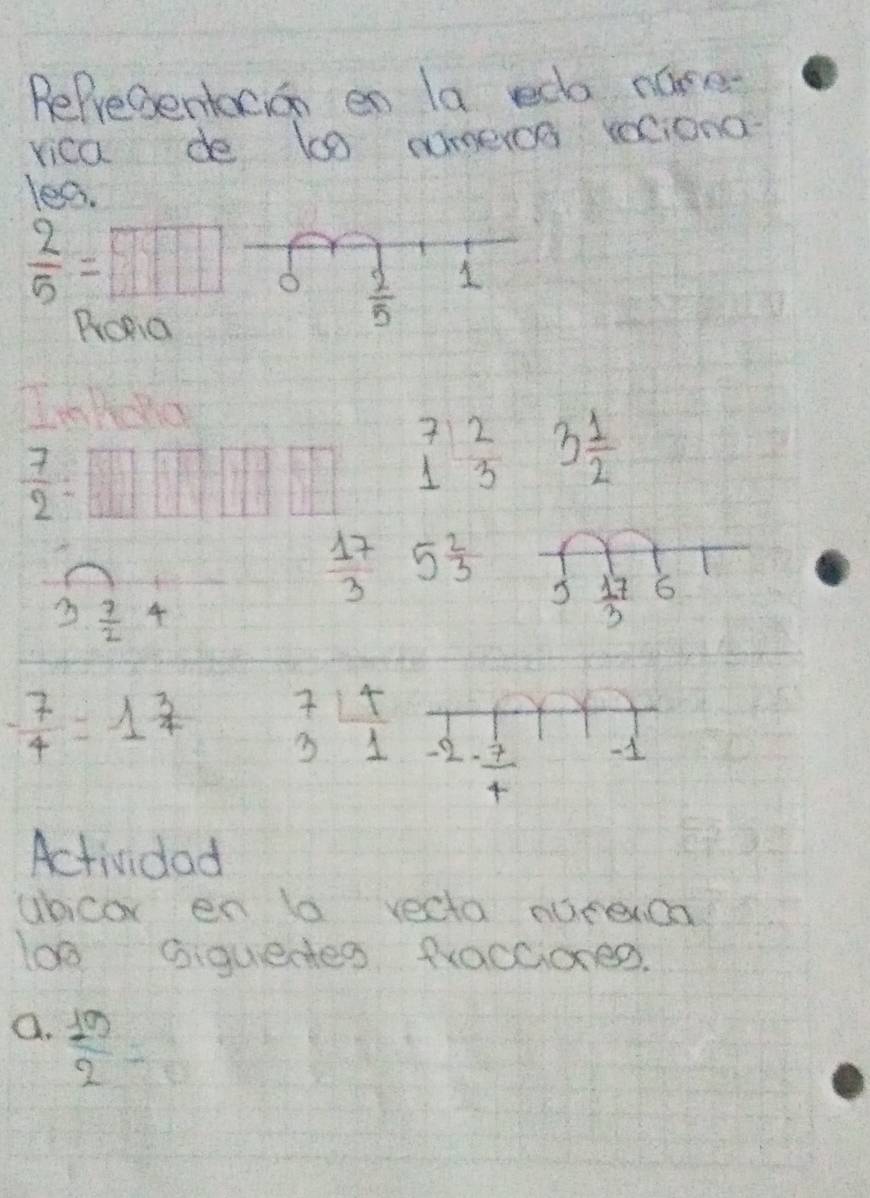 Representación en la recta núme-
rica de los numeros raciona-
les.
2/5 = 0 2/5 1
Propia
Impropia
7/2 = 7 2 1 3 3 1/2
3 7/2 4 17/3 5 2/3 5 17/3 6
-7/4 = 1 3/4 7 4 3 1 -2 -7/4 -1
Actividad
Ubicar en la recta númerica
los siguentes fracciones.
a. 19/2 =